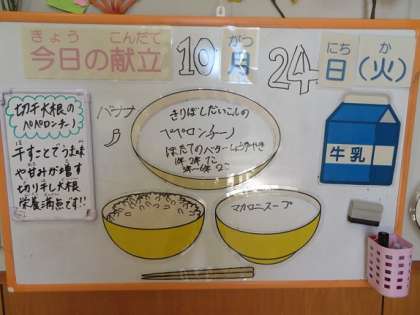 きょう こんだて
今日の献立
10
がつ
月
24
にち
日
か
(火)
切干大根の
ペペロンチーノ
干すことでうま味
や甘みが増す
切り干し大根
栄養満点です!!
バナナ
きりぼしだいこんの
ペペロンチーノ
ほたてのバターしょうゆやき
牛乳
マカロニスープ